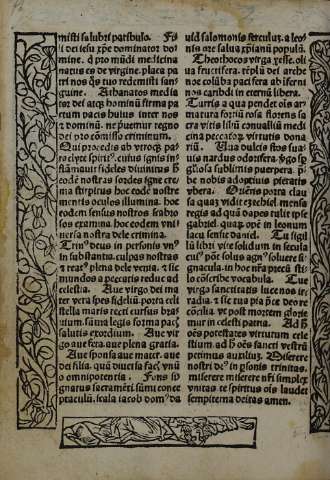 misti salubri patibulo. Fi
li dei iesu xp̄e dominator do
mine. q̇ pro mūdi medicina
natus es de virgine. placa pa
tri nos q̇s tuo redemisti san
guine. Athanatos media
tor dei atqȝ hominū firma pa
ctum pacis huius inter nos
⁊ dominū. ne
deꝑeat regno
dei pro cōmisso criminum.
Qui procedis ab utroqȝ. pa
raclyte spirit⁹. cuius ignis in
flāmauit fideles diuinitus h
code nostras sordes igne cre
ma stirpitus hoc code nostre
mentis oculos illumina. hoc
eodem sensus nostros scabro
sos examina. hoc eodem vni
uersa nostra dele crimina.
Trin⁹ deus in personis vn⁹
in substantia. culpas nostras
⁊ reat⁹ plena dele venia. ⁊ sic
mundos a peccatis reduc ad
celestia. Aue virgo dei ma
ter vera spes fideliū. porta celi
stella maris recti cursus bra
uium. summa legis forma paci
salutis exordium. Aue vir
go aue fera. aue plena gratia.
Aue sponsa aue mater. aue
dei filia. quā diuersa fac̄ vnū
⁊ omnipotentia. Fons si
gnatus sacramēti sūmi conce
ptaculū. scala iacob dom⁹ da
uid salomonis ferculū. a leo
nis me salua xp̄ianū populū.
Theothocos virga yesse. oli
ua fructifera. tēplū dei arche
noe colūba pacifera ab inferni
nos caribdi in eternū libera.
Turris a qua pendet oīs ar
matura fortiū rosa florens sa
cra vitis liliū conualliū medi
cina peccatoȝ. virtutis dona
riū. Vua dulcis flos sua
uis nardus odorifera. v̄go sp̄
gl̄iosa sublimis puerpera. p
be nobis adoptiuis pietatis
vbera. Oriens porta clau
sa quas vidit ezechiel. mensa
regis ad quā dapes tulit ip̄se
gabriel. quaȝ opē in leonum
lacu sensit daniel. Tu sigil
lū libri vite solidum in secula
cui⁹ pōt solus agn⁹ soluere si
gnacula. in hoc nr̄a precū sti
lo cōscribe vocabula. Tu
virgo sanctitatis lucenos ir
radia. ⁊ sic tua pia p̄ce deo re
cōcilia. vt post mortem glorie
mur in celesti patria. Ad h̄
oēs potestates virtutum cele
stium. ad h̄ oēs sancti vestrū
petimus auxiliū. Miserere
nostri de⁹ in ꝑsonis trinitas.
miserere miserere nr̄i simplex
vnitas te spiritus ois laudet
sempiterna deitas amen.